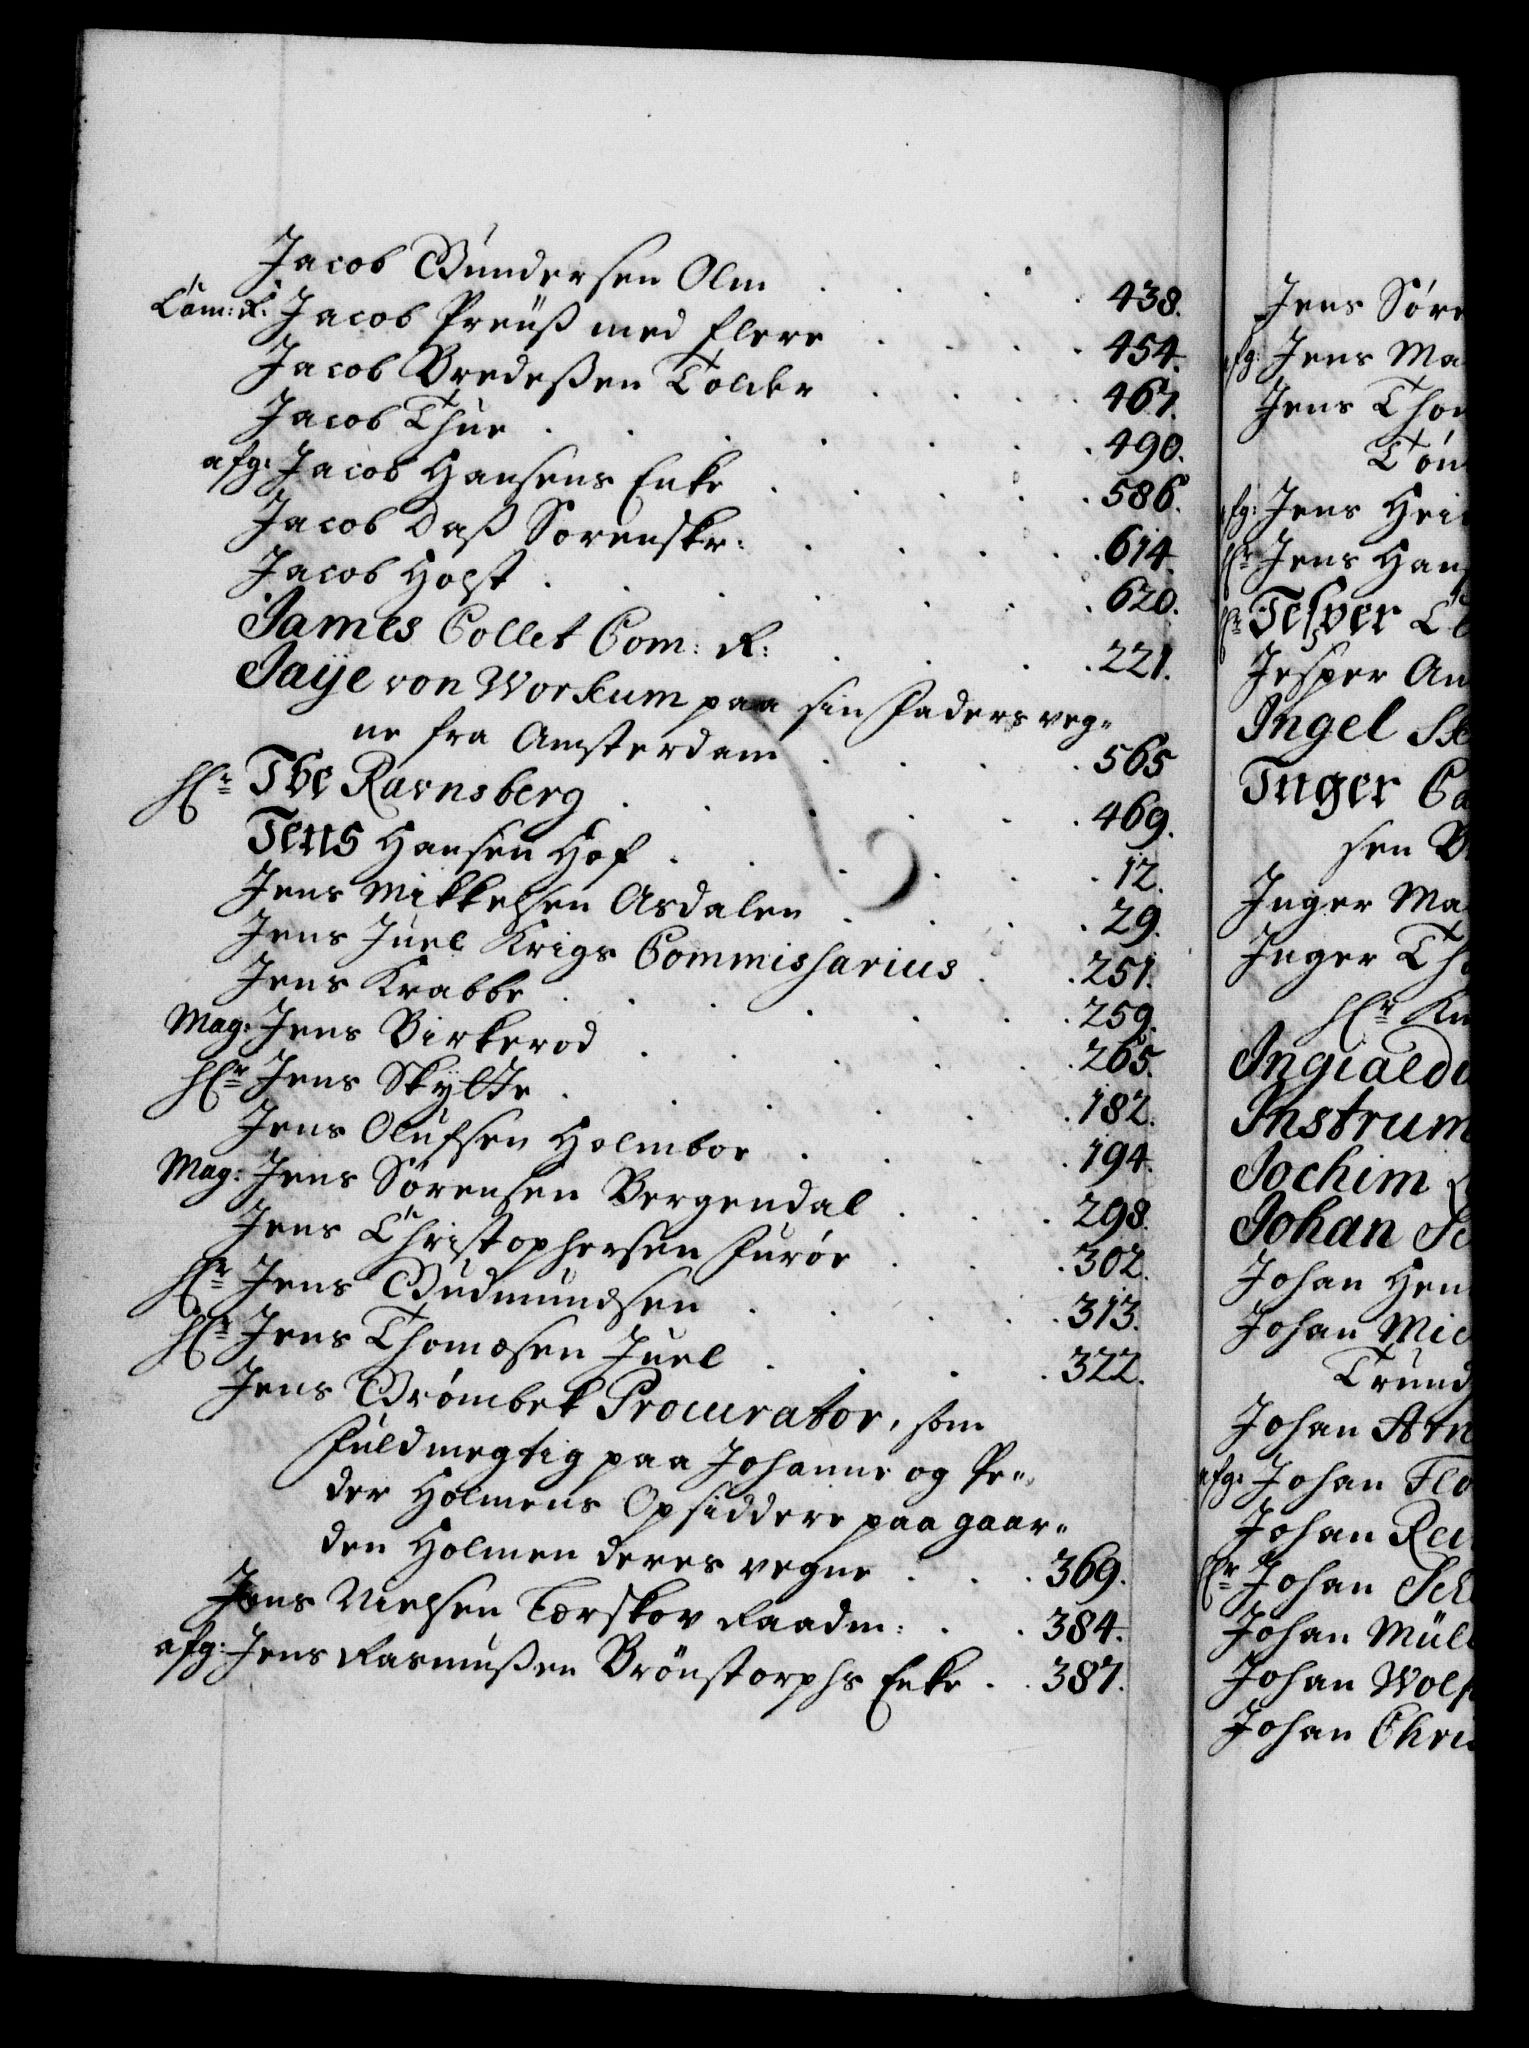 Jacob Gundersen Olm . . . . 438.
Cam: R: Jacob Preüß med flere . . . . 454.
Jacob Bredeßen Tolder . . . . 467.
Jacob Thue . . . . . . . 490.
afg: Jacob Hansens Enke . . . . 586.
Jacob Daß Sorenskr: . . . . 614.
Jacob Holst . . . . . . 620.
James Collet Com: R: . . . . 221.
Jaije von Workum paa sin Faders veg=
ne fra Amsterdam . . . . 565
Hr Ibe Ravnsberg . . . . . . 469.
Jens Hansen Hof . . . . . . 12.
Jens Mikkelsen Asdalen . . . . 29.
Jens Juel Krigs Commissarius . . 251.
Jens Krabbe . . . . . . 259.
Mag: Jens Birkerod . . . . . 265.
Hr Jens Skytte . . . . . . 182.
Jens Olufsen Holmboe . . . . 194.
Mag: Jens Sörensen Bergendal . . . 298.
Jens Christophersen Furöe . . . 302.
Hr Jens Gudmundsen . . . . . 313.
Hr Jens Thomæsen Juel . . . . 322.
Jens Grömbek Procurator, som
Fuldmegtig paa Johanne og Pe=
der Holmens Opsiddere paa gaar=
den Holmen deres vegne . . . 369.
Jens Nielsen Torskov Raadm: . . 384.
afg: Jens Rasmußen Brönstorphs Enke . . 387.
Jens Söre
afg: Jens Ma
Jens Thom
Tön
afg: Jens Hei
Hr Jens Hans
Hr Jesper Cl
Jesper An
Ingel
Inger
sen
Inger Ma
Inger Th
Hr Kn
Ingiald
Instrum
Jochim
Johan
Johan Hen
Johan Mic
Trund
Johan Arn
afg: Johan Flo
Johan Rei
Hr Johan Sch
Johan Müll
Johan Wolf
Johan Chris